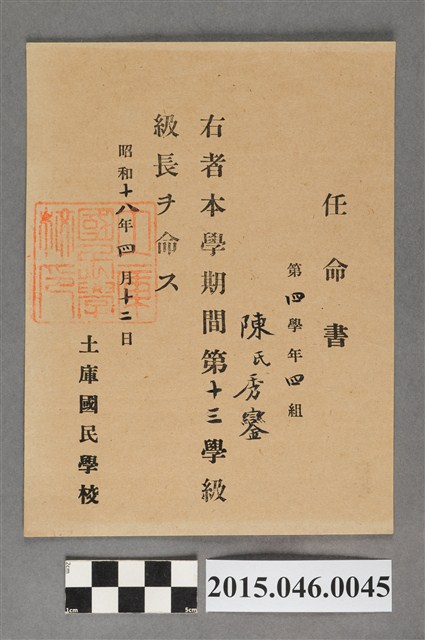 任命書
第四學年四組
陳氏秀鑾
右者本學期間第十三學級
級長ヲ命ス
昭和十八年四月十二日
土庫國民學校
1cm
5cm
2015.046.0045